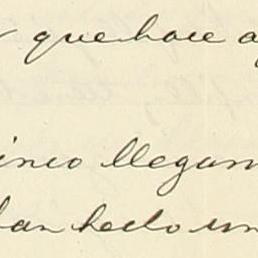 que hace a
inco llegam
han hecho un